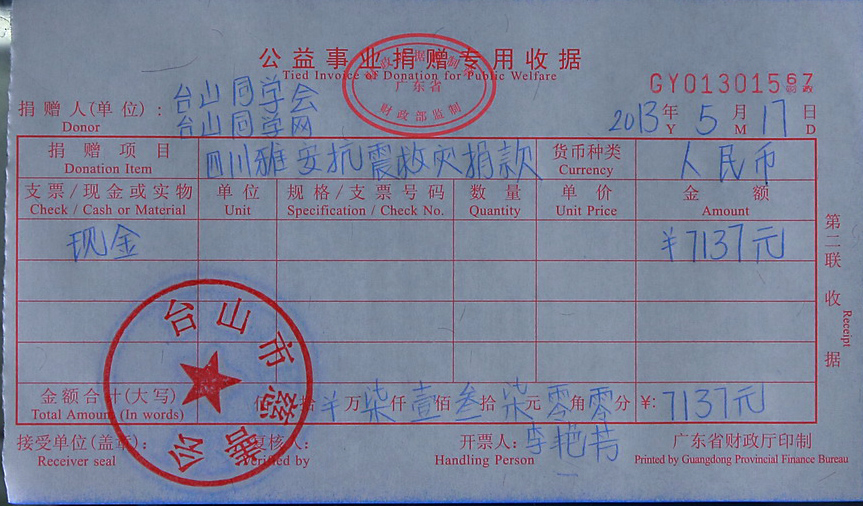 公益事业捐赠专用收据
Tied Invoice of Donation for Public Welfare
广东省
财政部监制
GY01301567
捐赠人(单位)： 台山同学会
Donor 台山同学网
2013年 5月 17日
Y M D
捐赠项目 四川雅安抗震救灾捐款 货币种类 人民币
Donation Item Currency
支票/现金或实物 单位 规格/支票号码 数量 单价 金额
Check / Cash or Material Unit Specification / Check No. Quantity Unit Price Amount
现金 ¥7137元
第二联 收据
Receipt
台山市慈善会
金额合计(大写) 佰 拾¥万柒仟壹佰叁拾柒元零角零分 ¥: 7137元
Total Amount (In words)
接受单位(盖章)： 复核人： 开票人：李艳芳 广东省财政厅印制
Receiver seal Verified by Handling Person Printed by Guangdong Provincial Finance Bureau